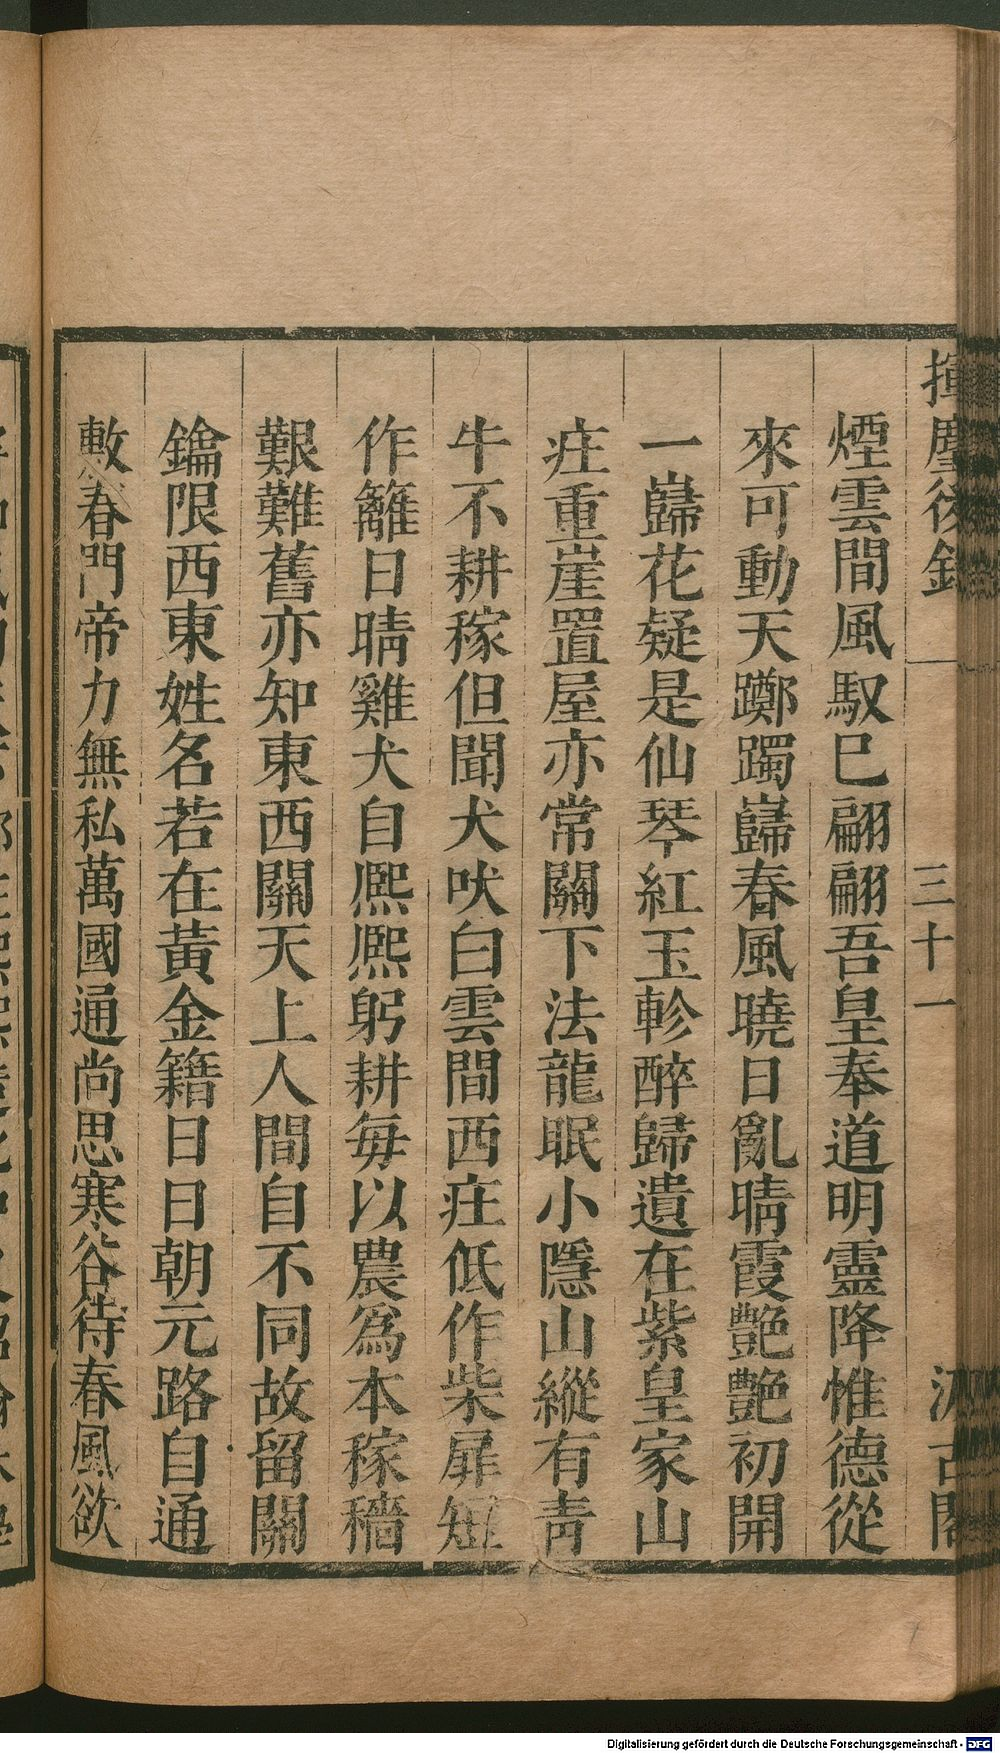 揮麈後錄 三十一 汲古閣
煙雲間風馭巳翩翩吾皇奉道明靈降惟德從
來可動天躑躅巋春風曉日亂晴霞艶艶初開
一巋花疑是仙琴紅玉軫醉歸遺在紫皇家山
庄重崖置屋亦常關下法龍眠小隱山縱有靑
牛不耕稼但聞犬吠白雲間西庄低作柴扉短
作籬日晴雞犬自熈熈躬耕每以農爲本稼穡
艱難舊亦知東西關天上人間自不同故留關
鑰限西東姓名若在黃金籍日日朝元路自通
敷春門帝力無私萬國通尚思寒谷待春風欲
Digitalisierung gefördert durch die Deutsche Forschungsgemeinschaft - DFG